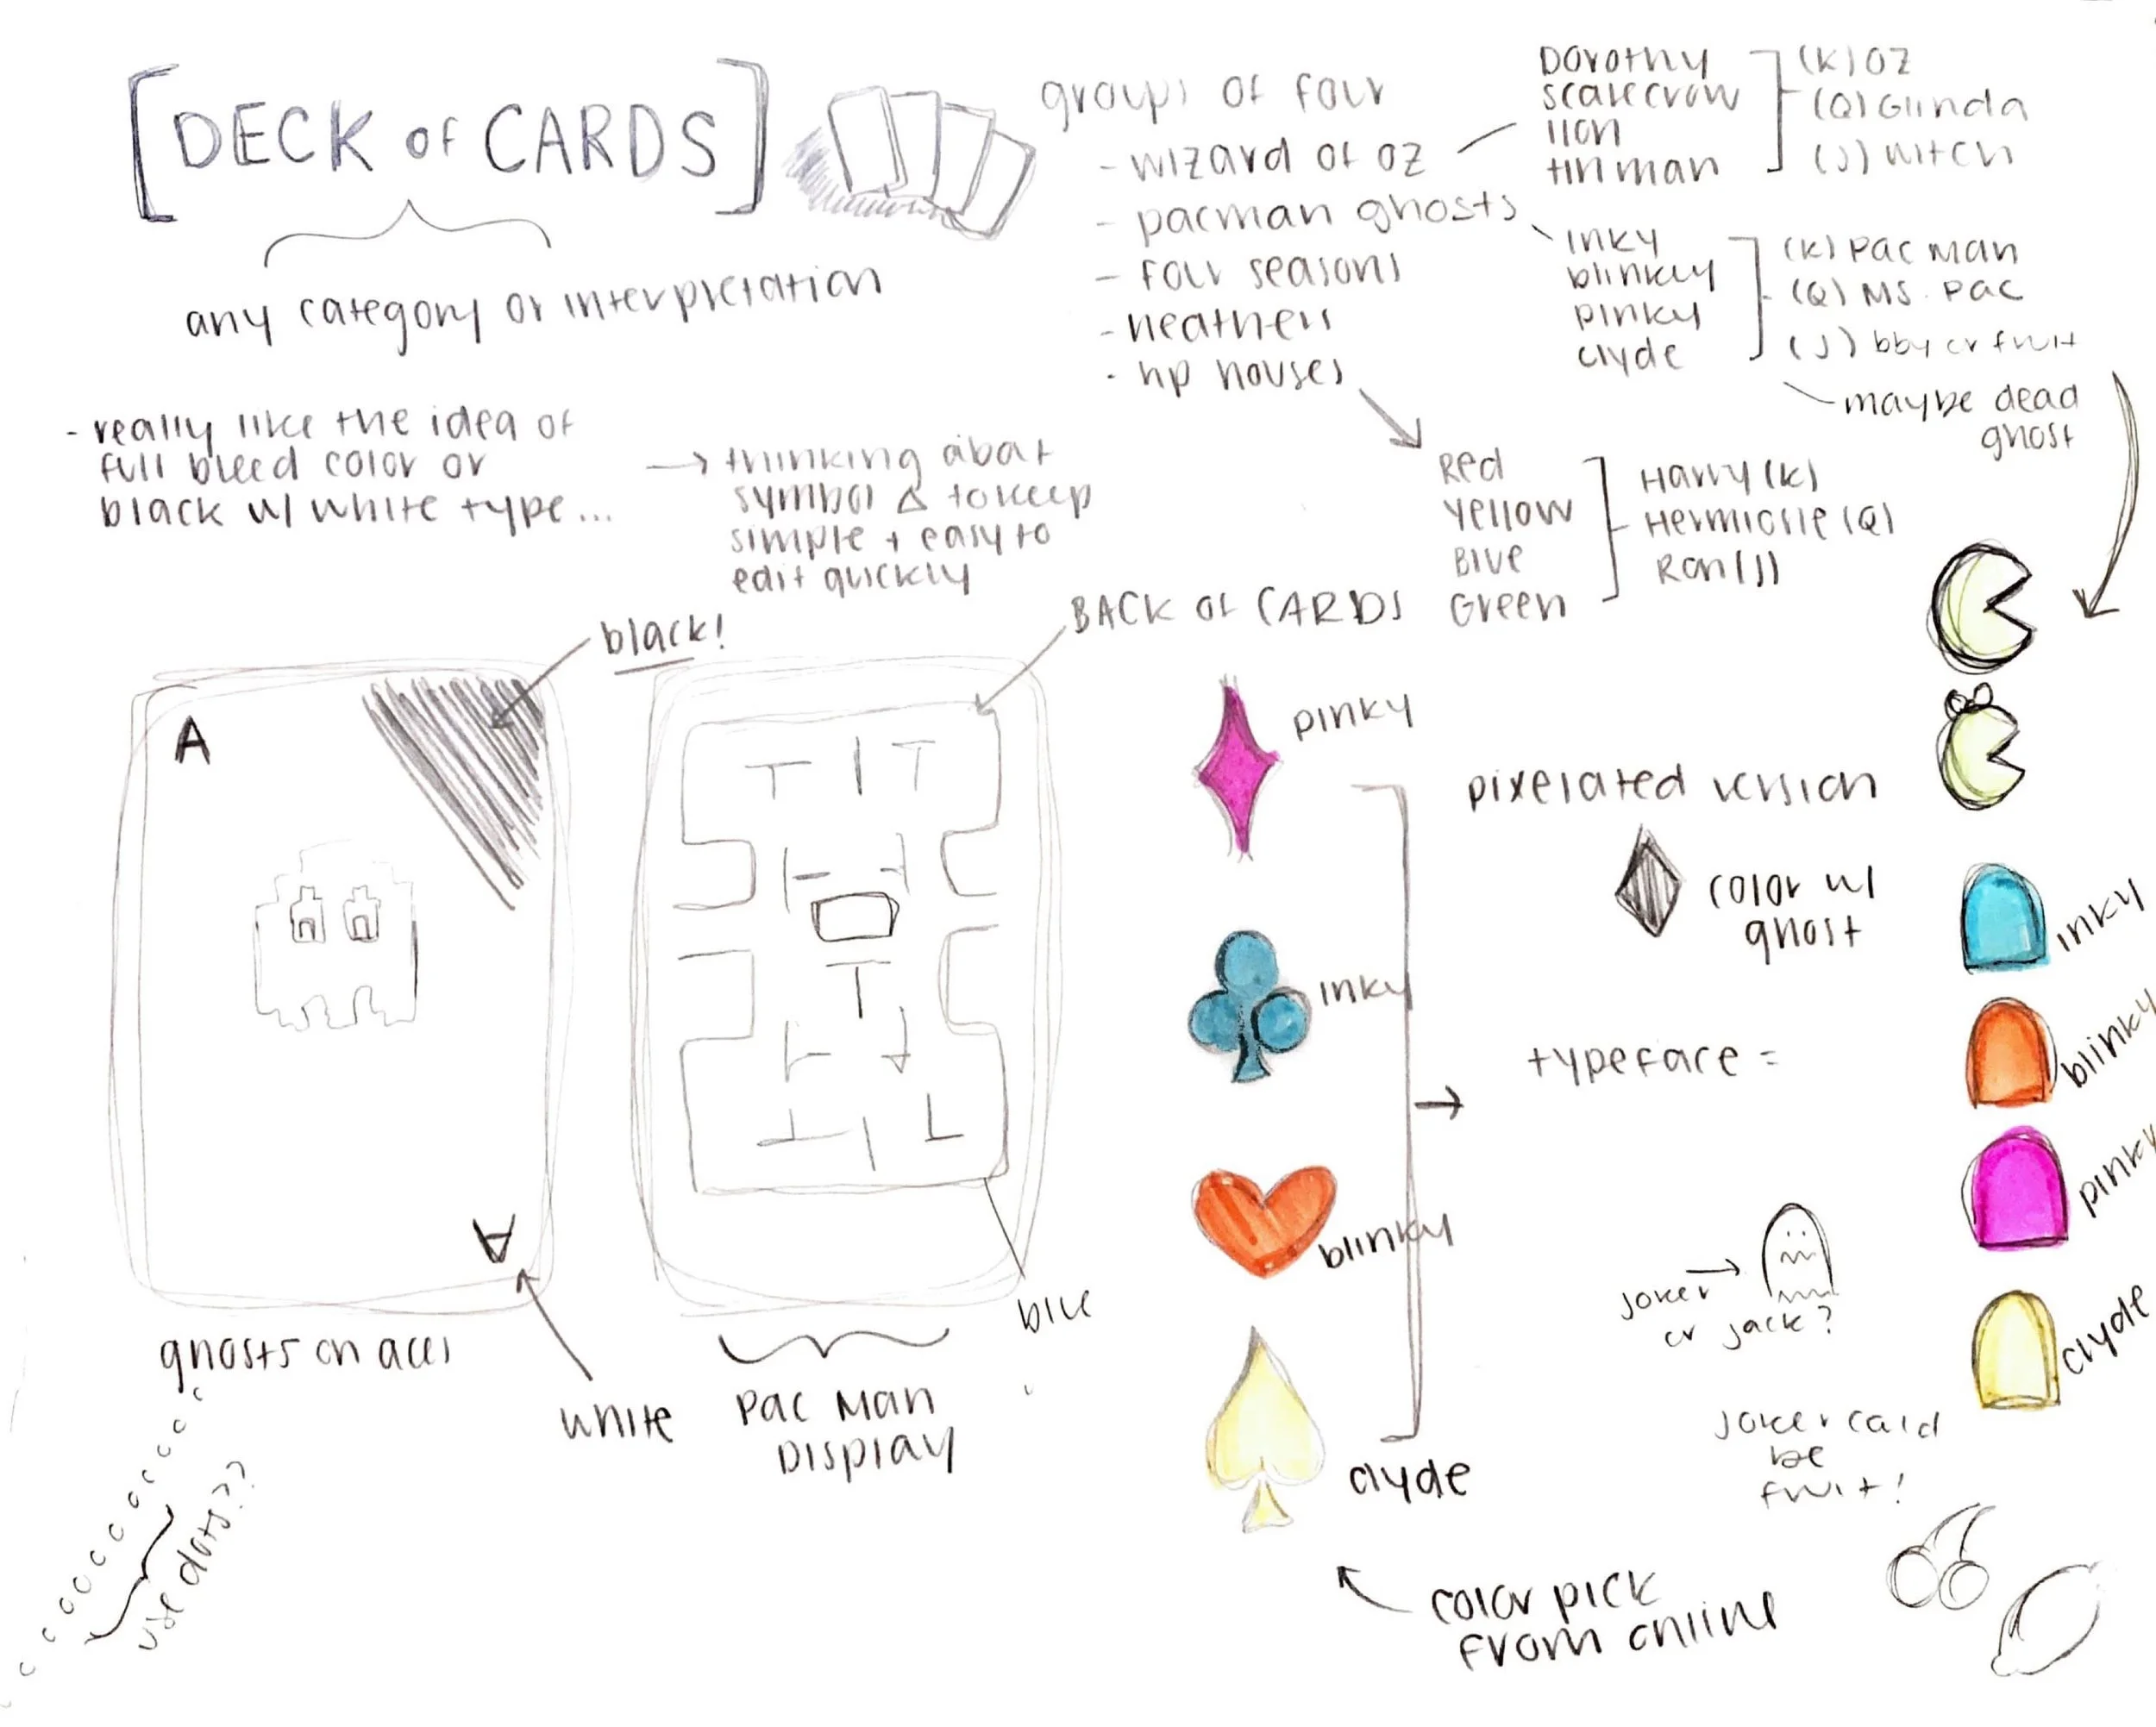 [DECK of CARDS]
any category or interpretation
groups of four
- wizard of oz
- pacman ghosts
- four seasons
- heathers
- hp houses
Dorothy
scarecrow
lion
tin man
(K) OZ
(Q) Glinda
(J) witch
inky
blinky
pinky
clyde
(K) Pac Man
(Q) Ms. Pac
(J) bby or fruit
maybe dead
ghost
Red
Yellow
Blue
Green
Harry (K)
Hermione (Q)
Ron (J)
- really like the idea of
full bleed color or
black w/ white type...
→ thinking about
symbol to keep
simple + easy to
edit quickly
black!
BACK OF CARDS
A
A
ghosts on aces
white
Pac Man
Display
blue
use dots??
pinky
inky
blinky
clyde
color pick
from online
pixelated version
color w/
ghost
typeface =
joker →
or jack?
joker could
be
fruit!
inky
blinky
pinky
clyde